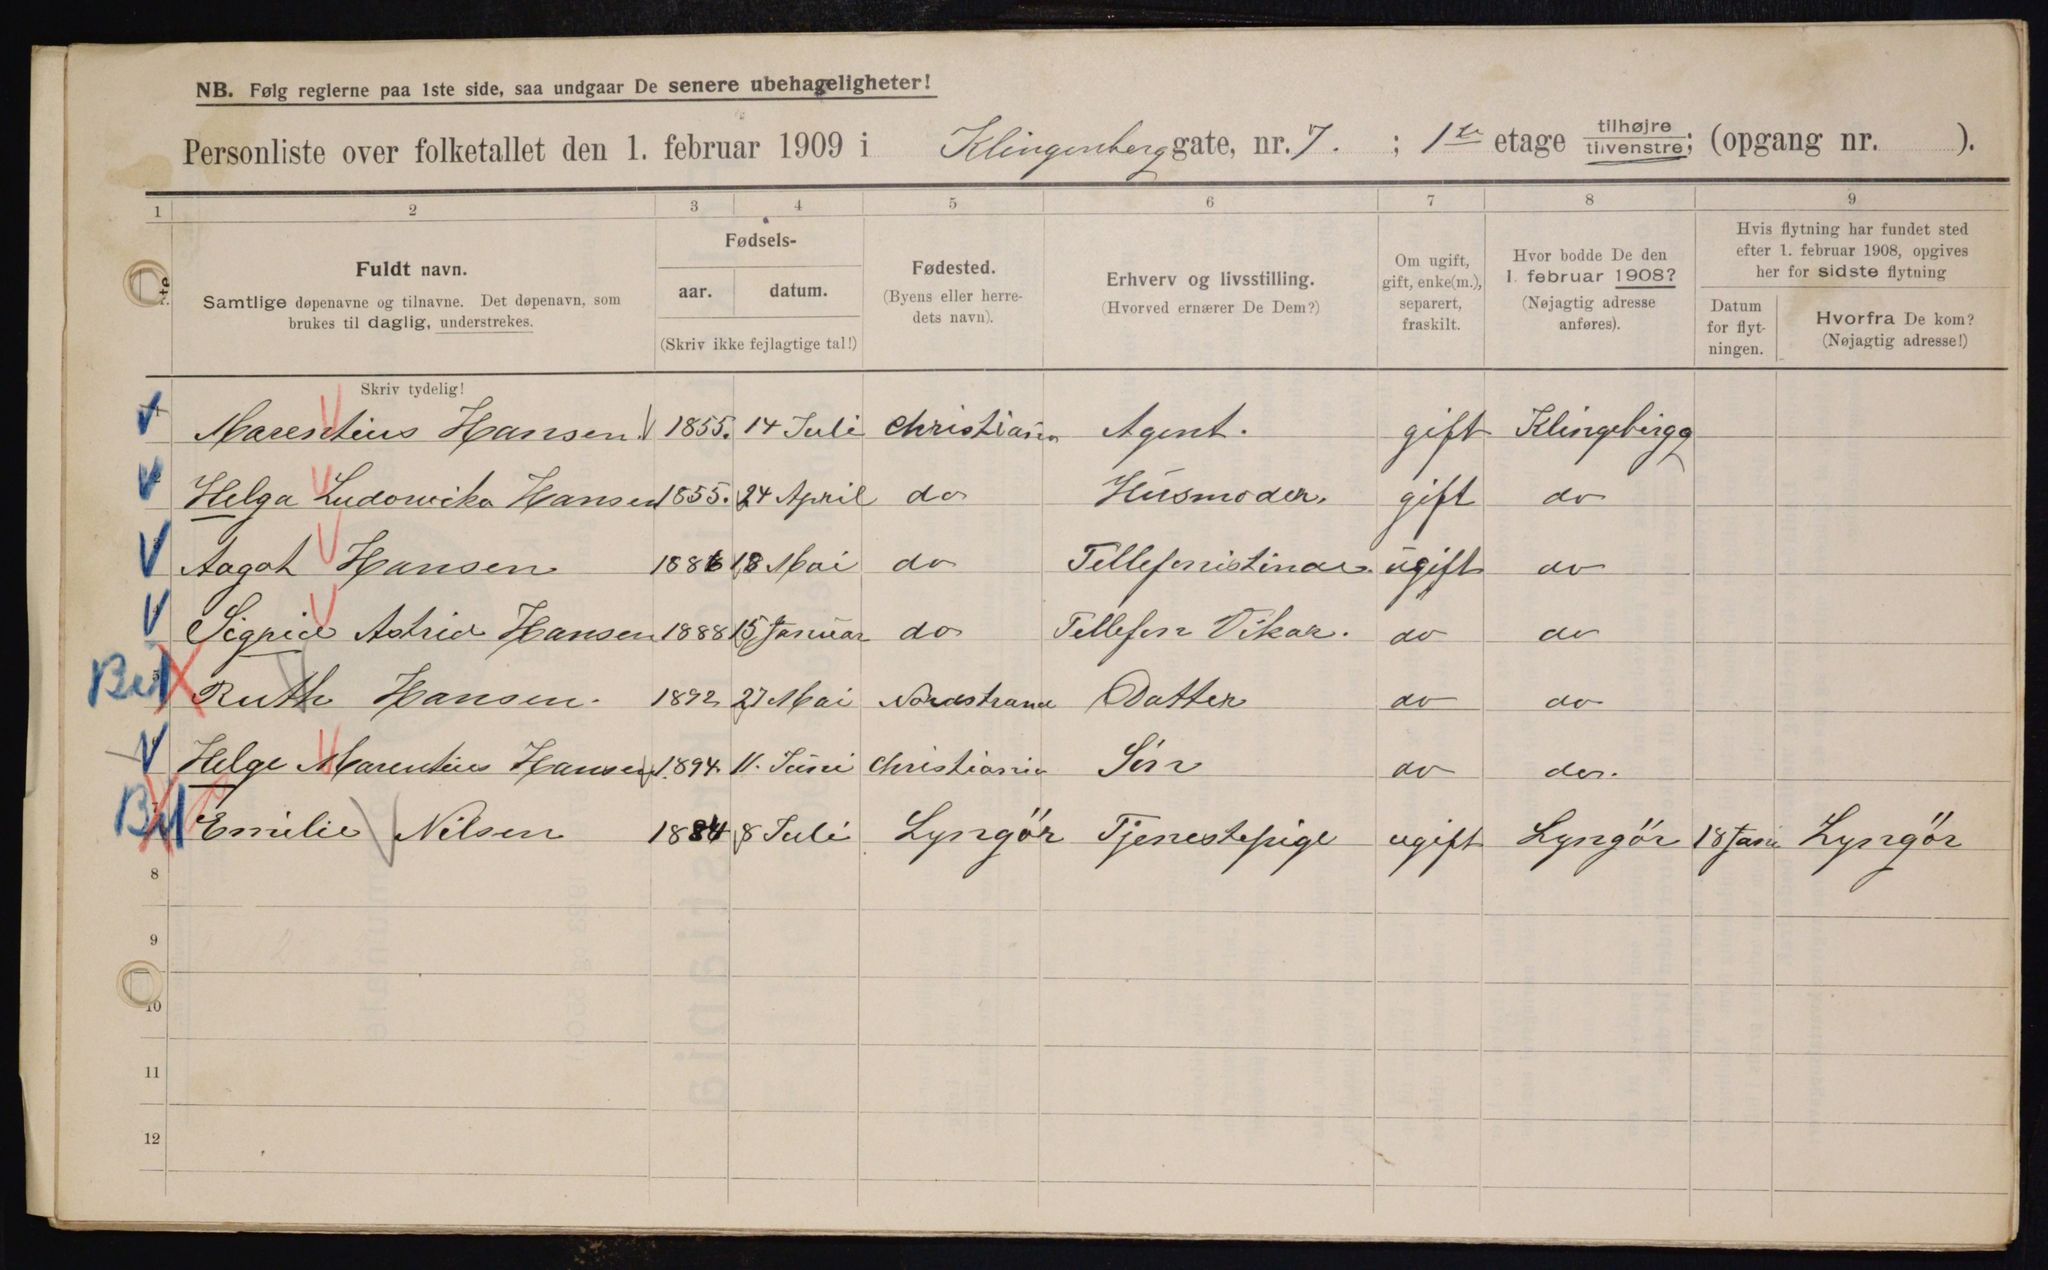 NB. Følg reglerne paa 1ste side, saa undgaar De senere ubehageligheter!
Personliste over folketallet den 1. februar 1909 i Klingenberggate, nr. 7. ; 1ste etage tilhøjre tilvenstre; (opgang nr. ).
1 2 3 4 5 6 7 8 9
Fuldt navn.
Samtlige døpenavne og tilnavne. Det døpenavn, som
brukes til daglig, understrekes.
Fødsels-
aar. datum.
(Skriv ikke fejlagtige tal!)
Fødested.
(Byens eller herre-
dets navn).
Erhverv og livsstilling.
(Hvorved ernærer De Dem?)
Om ugift,
gift, enke(m.),
separert,
fraskilt.
Hvor bodde De den
1. februar 1908?
(Nøjagtig adresse
anføres).
Hvis flytning har fundet sted
efter 1. februar 1908, opgives
her for sidste flytning
Datum
for flyt-
ningen.
Hvorfra De kom?
(Nøjagtig adresse!)
Skriv tydelig!
Marentius Hansen. 1855. 14 Juli Christiania Agent. gift Klingebergg
Helga Ludowika Hansen 1855. 24 April do Husmoder. gift do
Aagot Hansen 1886 18 Mai do Tellefonistinde. ugift do
Sigrid Astrid Hansen 1888 15 Januar do Tellefon Vikar. do do
Ruth Hansen. 1892 27 Mai Nordstrand Datter do do
Helge Marentius Hansen 1894 11. Juni Christiania Sön do do.
Emilie Nilsen 1884 8 Juli Lyngör Tjenestepige ugift Lyngör 18 Jani Lyngör
8
9
10
11
12